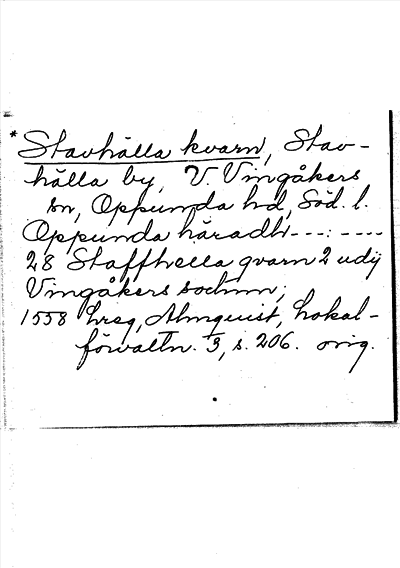 * Stavhälla kvarn, Stav-
hälla by, V. Vingåkers
sn, Oppunda hd, Söd. l.
Oppunda häradh ---: ----
28 Staffhella qvarn 2 udij
Vingåkers sochnn;
1558 hreg, Almquist, Lokal-
förvaltn. 3, s. 206. orig.